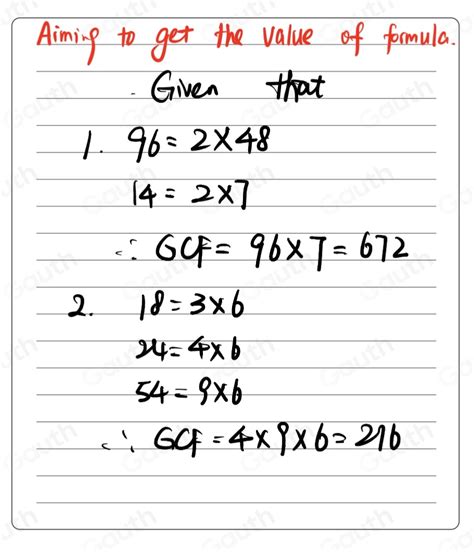 Aiming to get the value of formula.
Given that
1. 96 = 2×48
14 = 2×7
∴ GCF = 96×7 = 672
2. 18 = 3×6
24 = 4×6
54 = 9×6
∴ GCF = 4×9×6 = 216